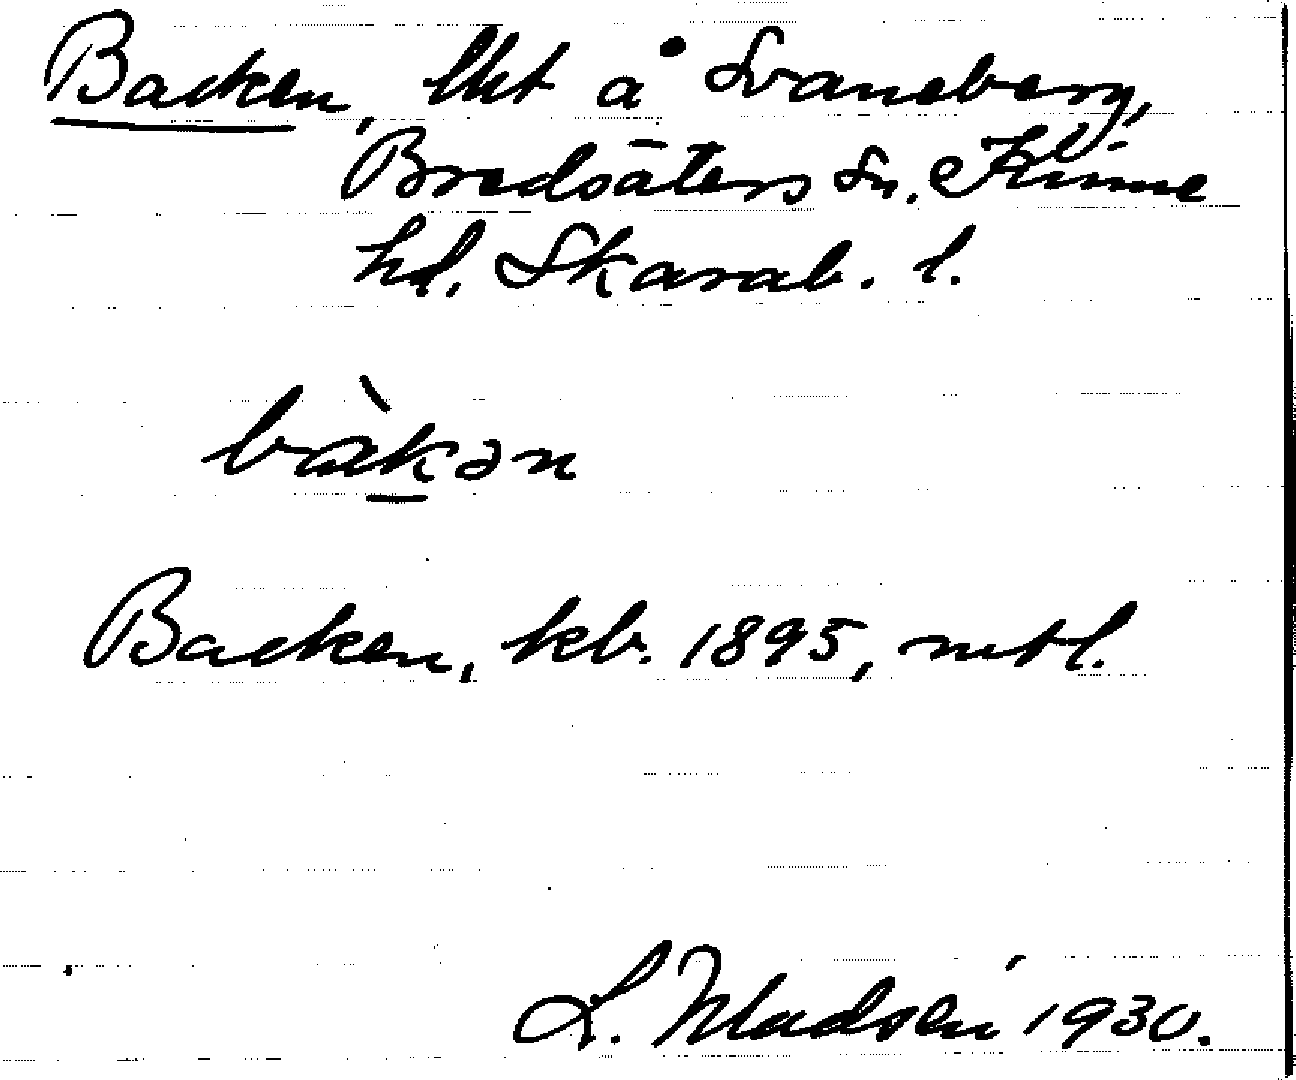 Backen, lht å Svaneberg,
Bredsäters sn. Kinne
hd. Skarab. l.
bàkən
Backen, kb. 1895, mtl.
L. Madsén 1930.